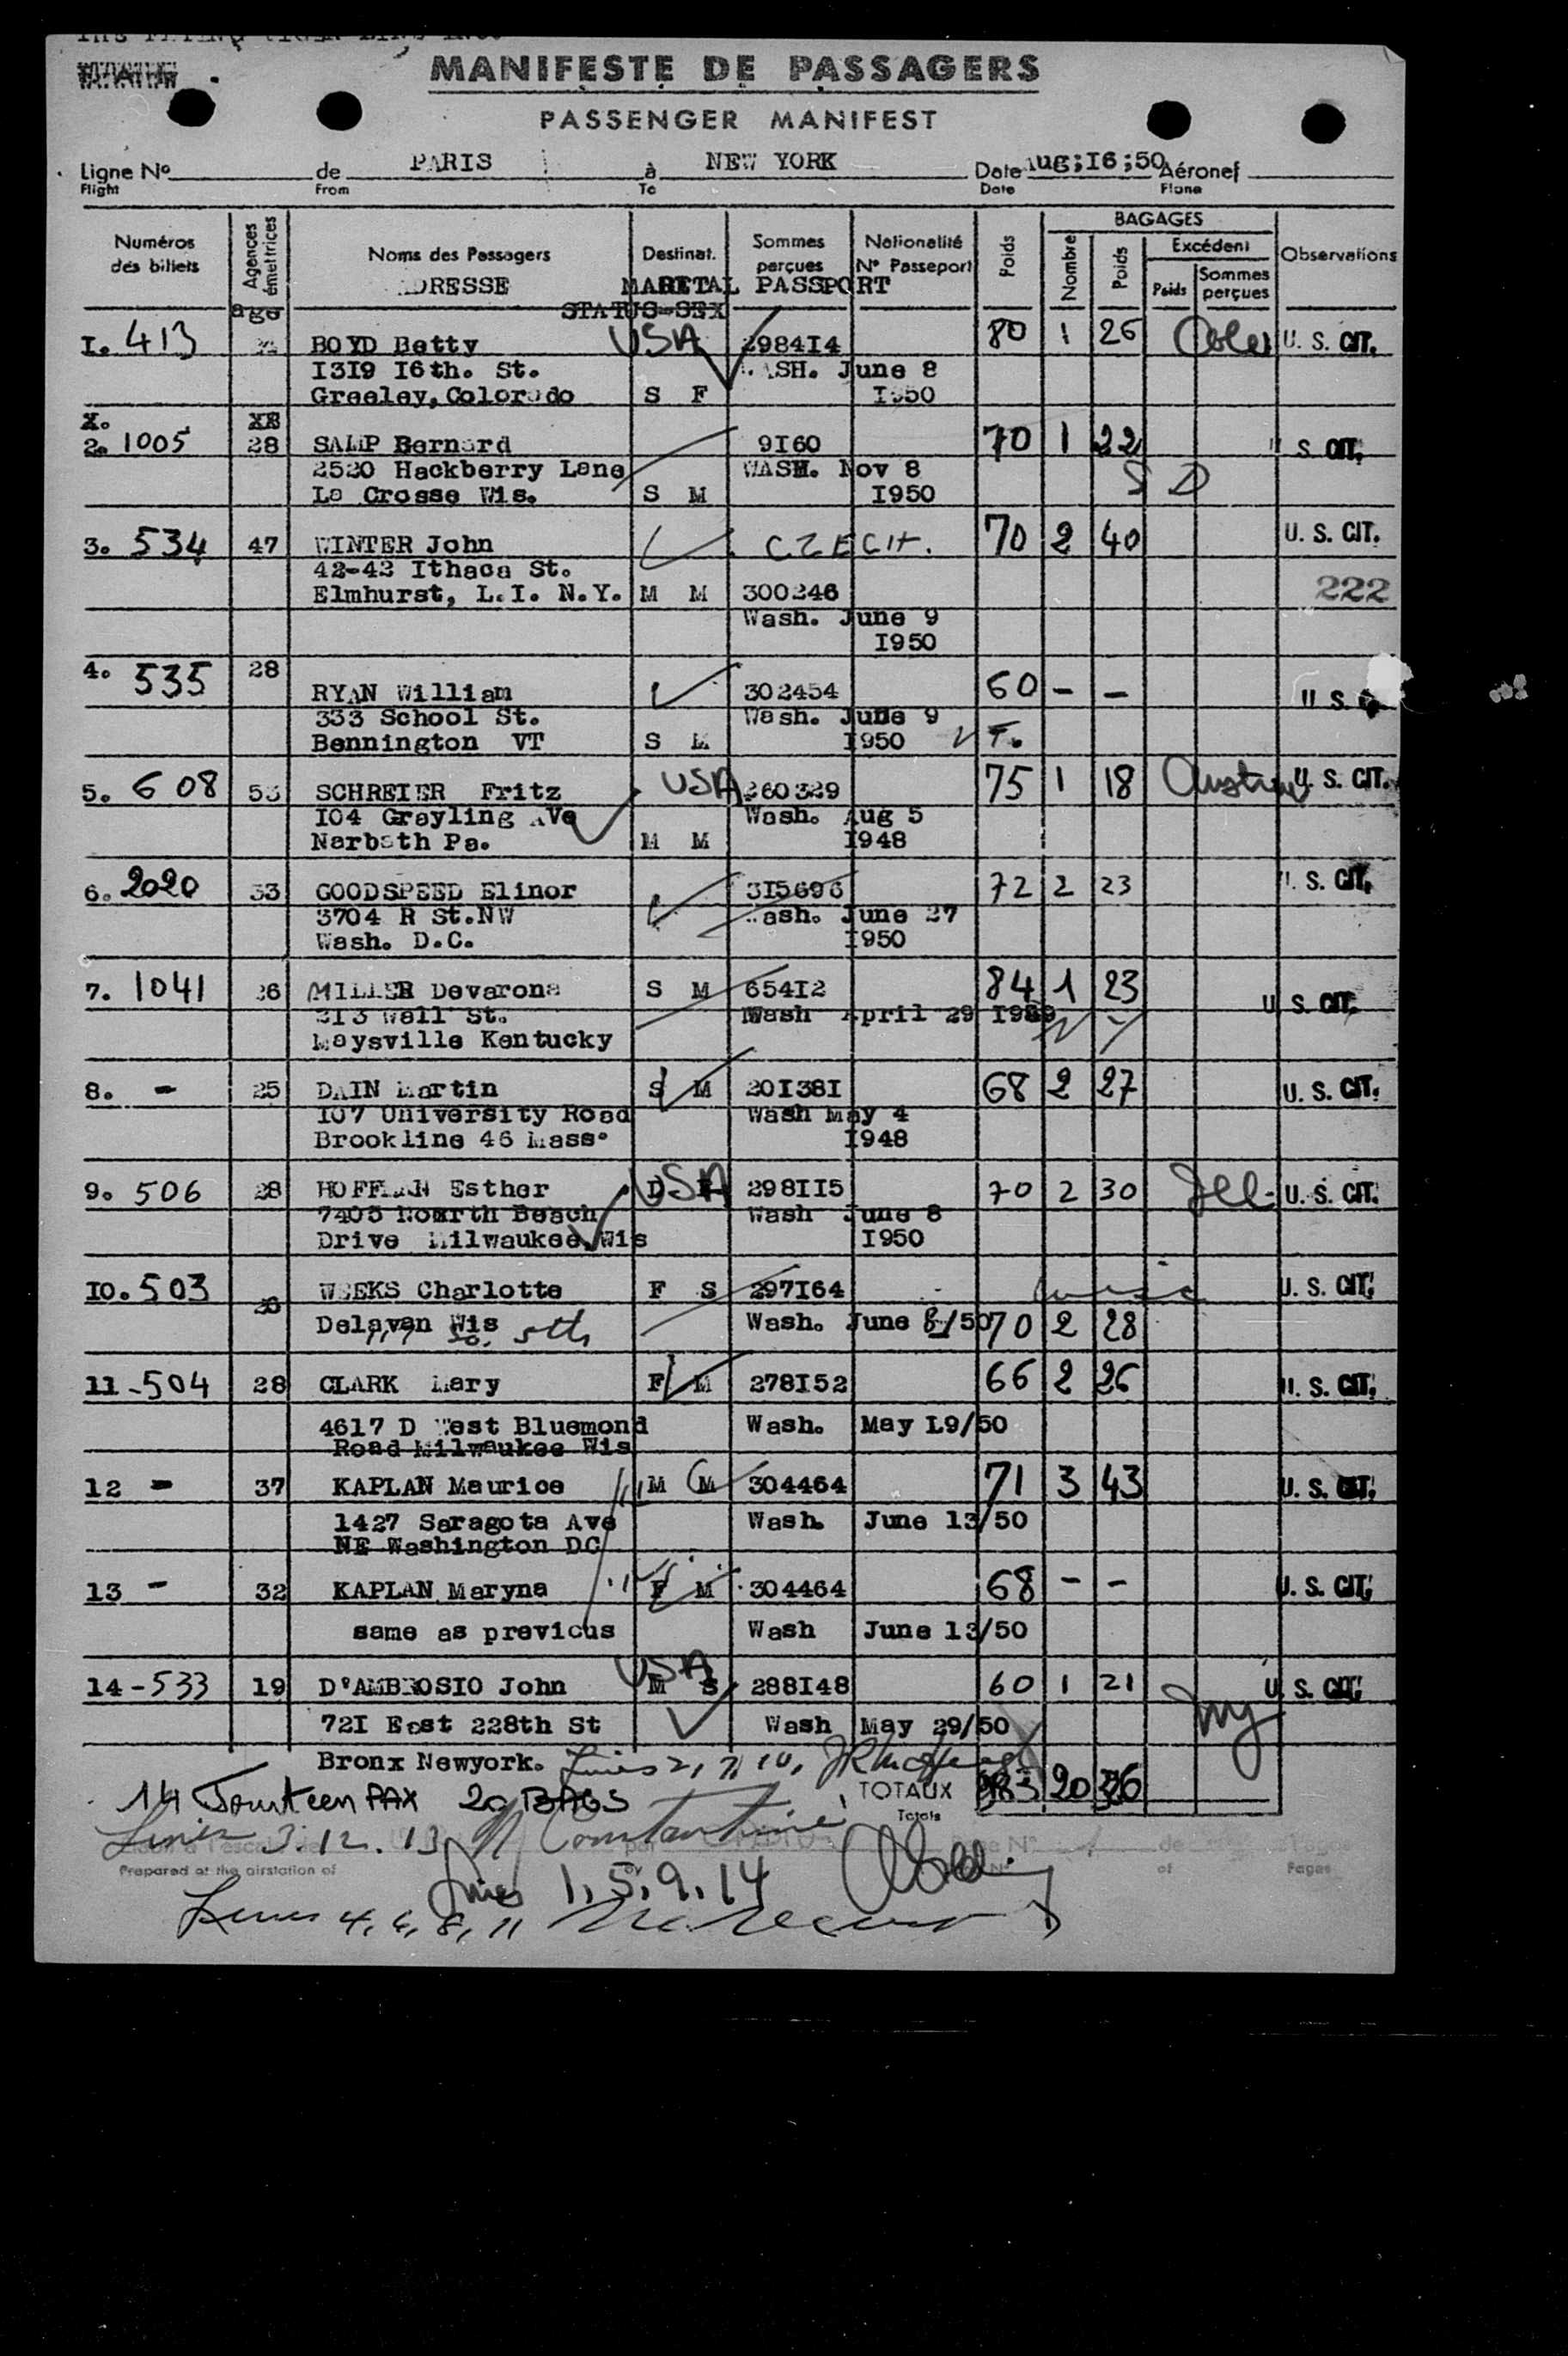 MANIFESTE DE PASSAGERS
PASSENGER MANIFEST
Ligne Nº de PARIS à NEW YORK Date Aug;I6;50 Aéronef
Flight From To Date Plane
Numéros des billets Agences émetrices Noms des Passagers Destinat. Sommes perçues Nationalité Nº Passeport Poids BAGAGES Nombre Poids Excédent Poids Sommes perçues Observations
age ADRESSE MARITAL PASSPORT
STATUS-SEX
I. 413 BOYD Betty USA 2984I4 80 1 26 U. S. CIT.
I3I9 I6th. St. WASH. June 8
Greeley, Colorado S F I950
X. XX
2. 1005 28 SALMP Bernard 9I60 70 1 22 U S. CIT.
2520 Hackberry Lane WASH. Nov 8 S D
La Crosse Wis. S M I950
3. 534 47 WINTER John CZECH. 70 2 40 U. S. CIT.
42-42 Ithaca St.
Elmhurst, L.I. N.Y. M M 300246 222
Wash. June 9
I950
4. 535 28
RYAN William 302454 60 - - U S.
333 School St. Wash. June 9
Bennington VT S M I950
5. 608 53 SCHREIER Fritz USA 260329 75 1 18 U. S. CIT.
I04 Grayling AVe Wash. Aug 5
Narbeth Pa. M M I948
6. 2020 33 GOODSPEED Elinor 3I5696 72 2 23 U. S. CIT.
3704 R St.NW Wash. June 27
Wash. D.C. I950
7. 1041 26 MILLER Devarona S M 654I2 84 1 23 U S. CIT.
2I3 Wall St. Wash April 29
Maysville Kentucky
8. - 25 DAIN Martin S M 20I38I 68 2 27 U. S. CIT.
I07 University Road Wash May 4
Brookline 46 Mass. I948
9. 506 28 HOFFMAN Esther USA 298II5 70 2 30 U. S. CIT.
7405 North Beach Wash June 8
Drive Milwaukee Wis I950
I0. 503 26 WEEKS Charlotte F S 297I64 U. S. CIT.
Delavan Wis So. 5th Wash. June 8/50 70 2 28
11-504 28 CLARK Mary F M 278I52 66 2 26 U. S. CIT.
4617 D West Bluemond Wash. May I9/50
Road Milwaukee Wis
12 - 37 KAPLAN Maurice M M 304464 71 3 43 U. S. CIT.
1427 Saragota Ave Wash. June 13/50
NE Washington DC
13 - 32 KAPLAN Maryna F M 304464 68 - - U. S. CIT.
same as previous Wash June 13/50
14-533 19 D'AMBROSIO John USA M S 288I48 60 1 21 U S. CIT.
72I East 228th St Wash May 29/50
Bronx Newyork. Lines 2, 7, 10,
14 Fourteen PAX 20 BAGS TOTAUX 20
Totals
Lines 3. 12. 13 N Constantine
Prepared at the airstation of of Pages
Lines 1. 5. 9. 14
Lines 4, 6, 8, 11